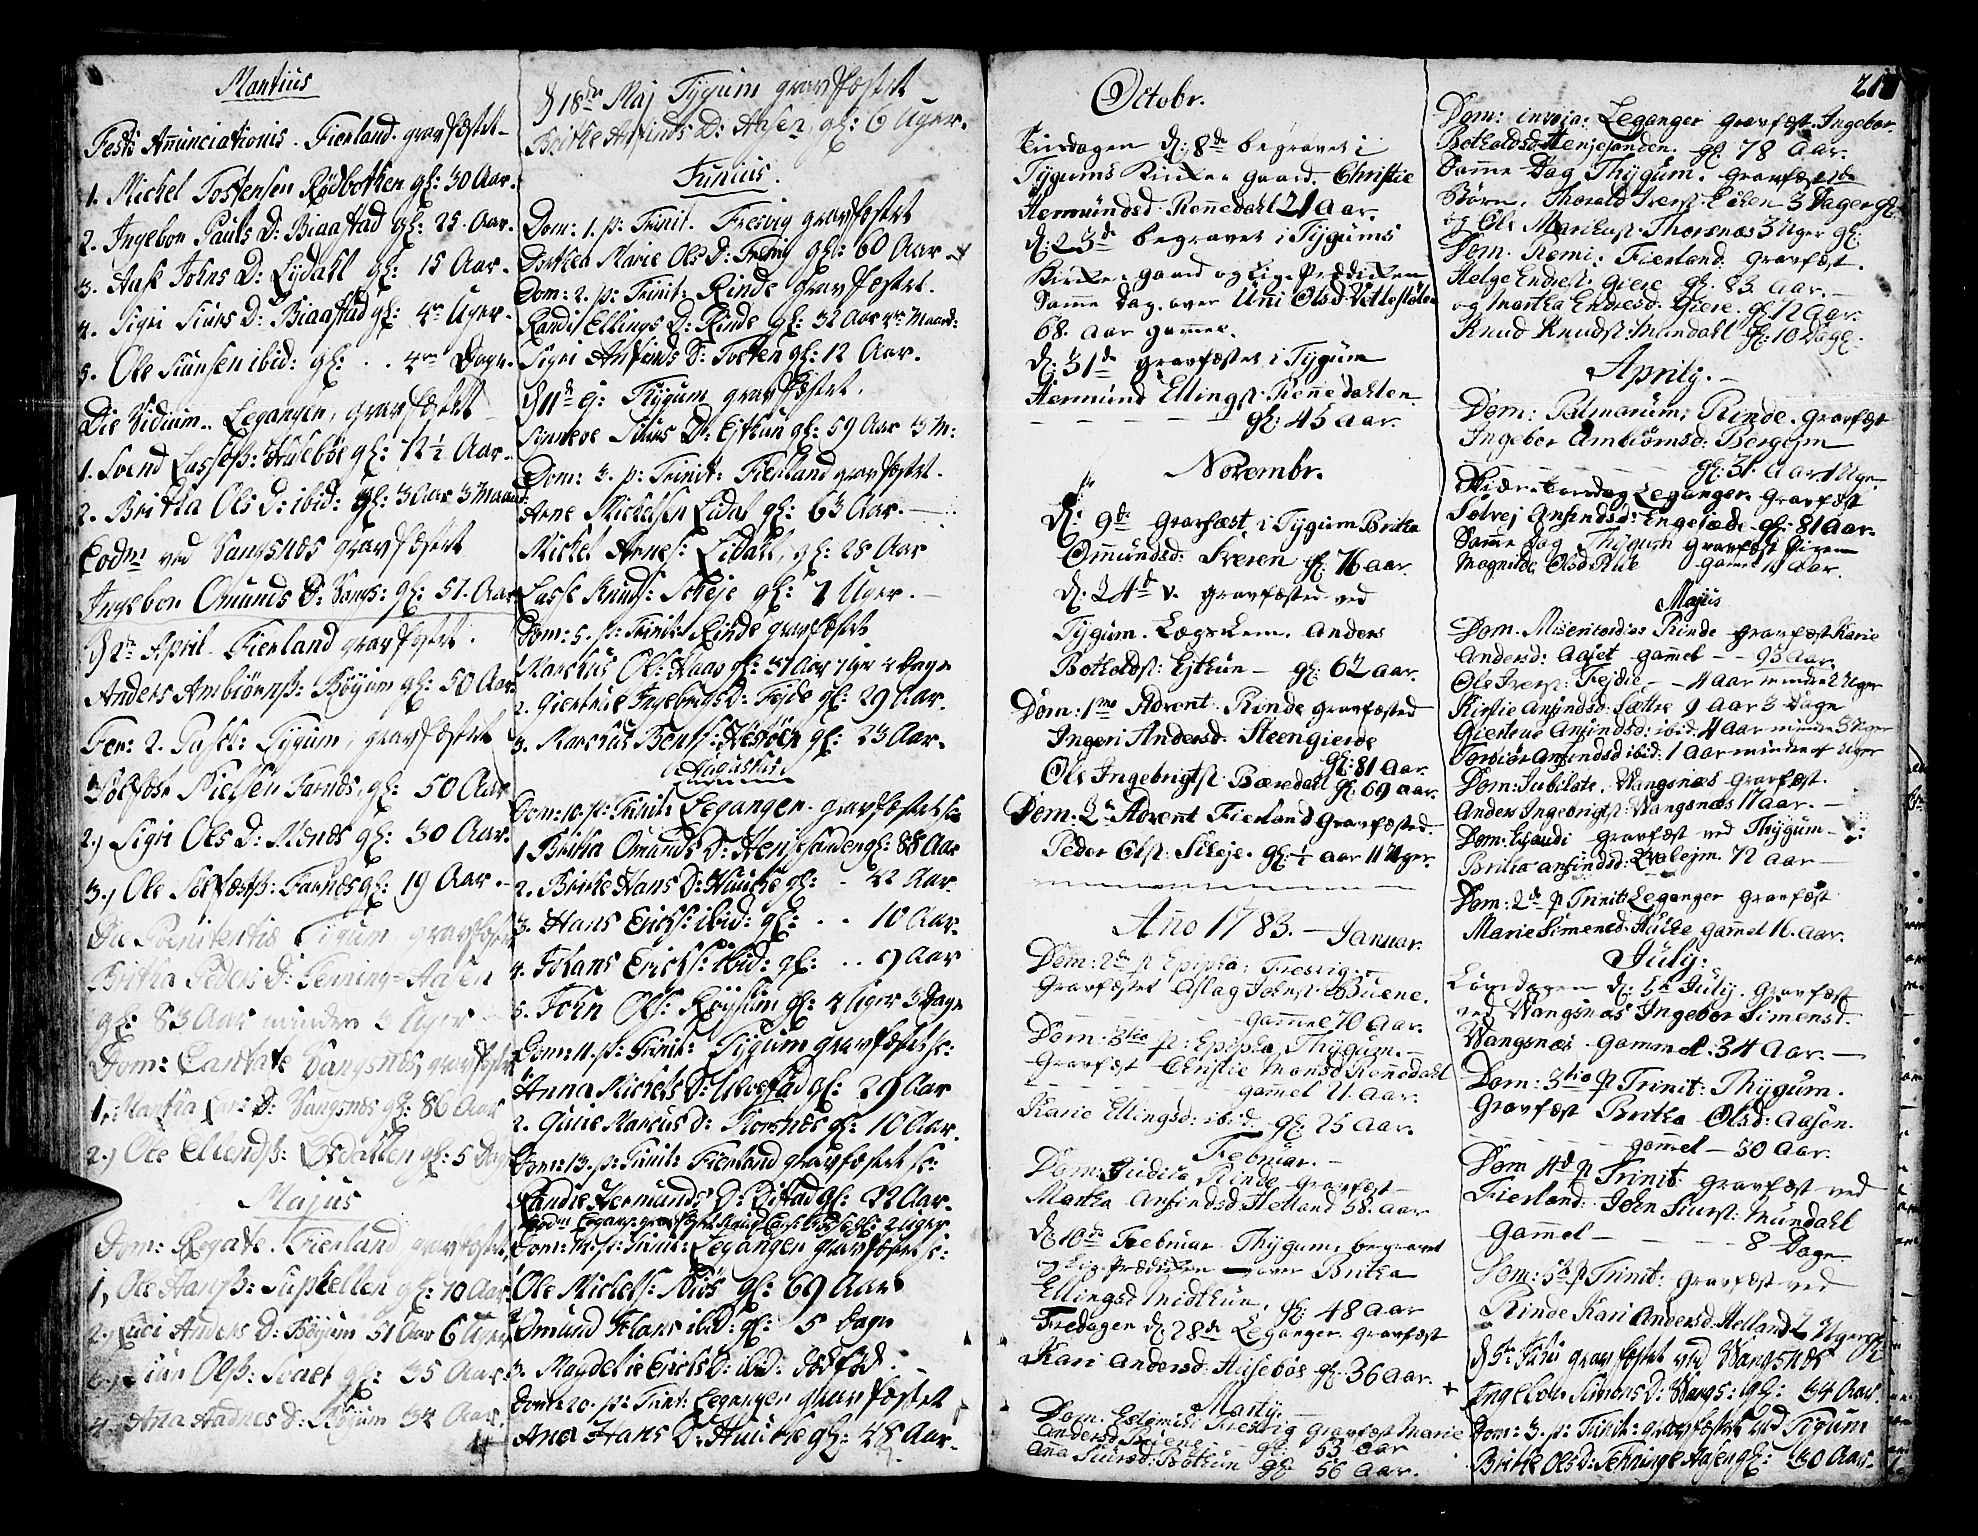 Martius
Festi Anunciationis. Fierland. gravfæstet
1. Michel Tostensen Rødbotten gl: 30 Aar.
2. Ingebor Pauls D: Biaastad gl: 25. Aar.
3. Aase Johns D: Lidahl gl: 15 Aar.
4. Sigri Siurs D: Biaastad gl: 4re Uger.
5. Ole Siursen ibid: gl: . . 4re Dage.
Die Viridium. Leganger, gravfæstet
1. Svend Lassess: Huseboe gl: 12½ Aar.
2. Britha Ols D: ibid: gl: 3 Aar 3 Maand:
Eodm ved Vangsnæs gravfæstet
Ingebor Omunds D: Vangs: gl: 51. Aar
d 2n April. Fierland gravfæstet.
Anders Ambiørnss: Bøyum gl: 50 Aar
Fer: 2. Pasch: Tygum, gravfæstet
Solfæst Nielsen Farnæs, gl: 50 Aar.
2.) Sigri Ols D: Nidnæs gl: 30 Aar.
3.) Ole Solfæstss: Farnæs gl: 19 Aar.
Die Poenitentiæ Tygum, gravfæstet
Britha Peders D: Tenning-Aasen
gl: 83 Aar mindre 3 Uger
Dom: Cantate Vangsnæs, gravfæstet
1. Martha Lars D: Vangsnæs gl: 86 Aar
2.) Ole Ellendss: Lidallen gl: 5 Dage
Majus
Dom: Rogate. Fierland gravfæstet
1, Ole Hanss: Suphellen gl: 70 Aar
2.) Luci Anders D: Bøyum 51 Aar 6 Uger
3.) Siur Olss: gl: 35 Aar
4. Ana Aadnes D: Bøyum 34 Aar.
d 18de Maj Tygum gravfæstet
Brithe Arinds D: Aasen, gl: 6 Uger.
Junius.
Dom: 1. p: Trinit. Fresvig gravfæstet
Dorthea Marie Ols D: Fresvig gl: 60 Aar
Dom: 2. p: Trinit: Rinde gravfæstet.
Randi Ellings D: Rinde gl: 32 Aar 4re Maand:
Sigri Anfinds D: Tosten gl: 12 Aar.
d 11de ej: Tygum gravfæstet.
Sinneve Siurs D: Eithun gl: 59 Aar 3 M:
Dom: 3. p: Trinit: Fierland gravfæstet.
Arne Michelsen Lidal gl: 63 Aar.
Michel Arnes: Lidahl, gl: 28 Aar
Lasse Knuds: gl: 7 Uger.
Dom: 5. p: Trinit: Rinde gravfæstet
1. Marthus Ols: gl: 51 Aar 1 Uger 2 Dage
2. Giertrue Ingebrigts D: Fejde gl: 29 Aar.
3. Marthus Bents: gl: 23 Aar.
Augustus,
Dom: 10. p: Trinit: Leganger gravfæstet se
1. Britha Omunds D: Henjesanden gl: 88 Aar
2. Brithe Hans D: Hucke gl: . 42 Aar.
3. Hans Ericks: ibid: gl: . . 10 Aar.
4. Johans Ericks: ibid: gl: . . 9 Aar
5. John Ols: Røysum gl: 4 Uger 3 Dage
Dom: 11. p: Trinit: Tygum gravfæstet se:
Anna Michels D: gl: 29 Aar
2. Gurie Marcus D: gl: 10 Aar.
Dom: 13. p: Trinit: Fierland gravfæstet se:
Randie Hermunds D: gl: 22 Aar.
Dom: 14. p: Trinit: Leganger gravfæstet se:
Ole Michels: gl: 69 Aar
Omund Johans ibid: gl: 5 Dage
3. Magdelie Ericks D: ibid: dødfød.
Dom: 20. p: Trinit: Leganger gravfæstet
Ana Hans D: Hucke gl: 48 Aar.
Octobr.
Tirsdagen d: 8de begravet i
Tygums Kirke gaard. Christie
Hermundsd: Rennedahl 21 Aar.
d: 23d begravet i Tygums
Kirke gaard og Lig prædiken
Samme Dag over Uni Olsd: Vettestølen
68. Aar gammel.
d: 31d gravfæstet i Tygum
Hermund Ellingst: Rennedalen
gl: 45 Aar.
Novembr.
d: 9de gravfæst i Tygum Britha
Ommundsd: Sveren gl: 76 aar.
d: 24de gravfæsted ved
Tygum. Lægs Lem. Anders
Botholdst: Ejthun — gl: 62 aar.
Dom: 1me Advent Rinde gravfæsted
Ingeri Andersd: Steengierde
gl: 81 Aar.
Ole Ingebrigtst: Bæredahl gl: 69 aar.
Dom: 2de Advent Fierland gravfæsted.
Peder Olst: gl: ½ aar 11 Uger.
Año 1783. — Januar.
Dom: 2de p Epipha: Fresvig.
Gravfæstet Aslag Johnst: Buene.
gammel 70 Aar.
Dom: 3tia p: Epipha Thygum.
gravfæst Christie Monsd: Rennedahl
gammel 21. aar.
Karie Ellingsd: ibid gl: 25 aar.
Februar.
Dom: Judica Rinde gravfæst
Martha Anfindsd: Hetland 58. aar
d: 10de Februar Thygum, begravet
og Lig prædiken over Britha
Ellingsd: Midthun, gl: 48 aar
Fredagen d: 28de Leganger gravfæst
Kari Andersd: Husebøe gl: 36 aar.
Martij.
Dom. Estomihi Fresvig gravfæst Marie
Andersd: gl: 53 aar
Ana Siursd: Bothun gl: 56 aar.
21
Dom: invoja: Leganger gravfæst Ingebor
Botholdsd: Henjesanden. gl: 78 aar.
Samme Dag Thygum. gravfæstede
Børn. Thorald Iverst: 3 Dager gl:
og Ole Marckust: Thorsnæs 3 Uger gl:
Dom. Remi: Fierland gravfæst.
Helge Endrest: Giere gl: 83 aar.
og Martha Endresd: Giere gl: 12 aar.
Knud Knudst: Mundahl gl: 10 Dage.
Aprily.
Dom: Palmarum, Rinde. gravfæst
Ingebor Ambiørnsd: Bergejm
gl: 31. aar 1 Uge
Skiær-torsdag Leganger gravfæst
Solvej Anfindsd: Engesæde gl: 81 aar.
Samme Dag Thygum gravfæst Pigen
Magnilde Olsd: gammel 11 aar.
Majus
Dom. Misericordias Rinde gravfæst Karie
Andersd: Aaset gammel — 93 aar.
Ole Iverst: Fejde — 4 aar mindre 2 Uger
Kirstie Anfindsd: Sættre 9 aar 3 Dage
Giertrue Anfindsd: ibid: 4 aar mindre 3 Uger
Torbiør Anfindsd ibid: 1 aar mindre 4 Uger
Dom: Jubilate. Wangsnæs gravfæst.
Anders Ingebrigtst: Wangsnæs 17 aar. —
Dom. Exaudi gravfæst ved Thygum
Britha Anfindsd: Qvalejm. 72 aar —
Dom: 2de p Trinit: Leganger gravfæst
Marie Simensd: Hucke gammel 16. aar.
July:
Løverdagen d: 5te July. gravfæst
ved Wangsnæs Ingebor Simensd.
Wangsnæs gammel 34 Aar. —
Dom: 3tia p Trinit: Thygum.
gravfæst Britha Olsd: Aasen.
gammel — 30 Aar.
Dom 4d p Trinit: gravfæst ved
Fierland. John Siurst: Mundahl
gammel — 8 Dage
Dom: 5te p Trinit: gravfæst ved
Rinde Kari Andersd: Hetland 2 Uger gl:
d 5te Julii gravfæstet ved Wangsnæs
Ingebor Simens D: Vangs: gl: 34 Aar.
Dom: 3. p: Trinit: gravfæstet ved Tygum
Brithe Ols D: Tenninge Aasen gl: 30 Aar.